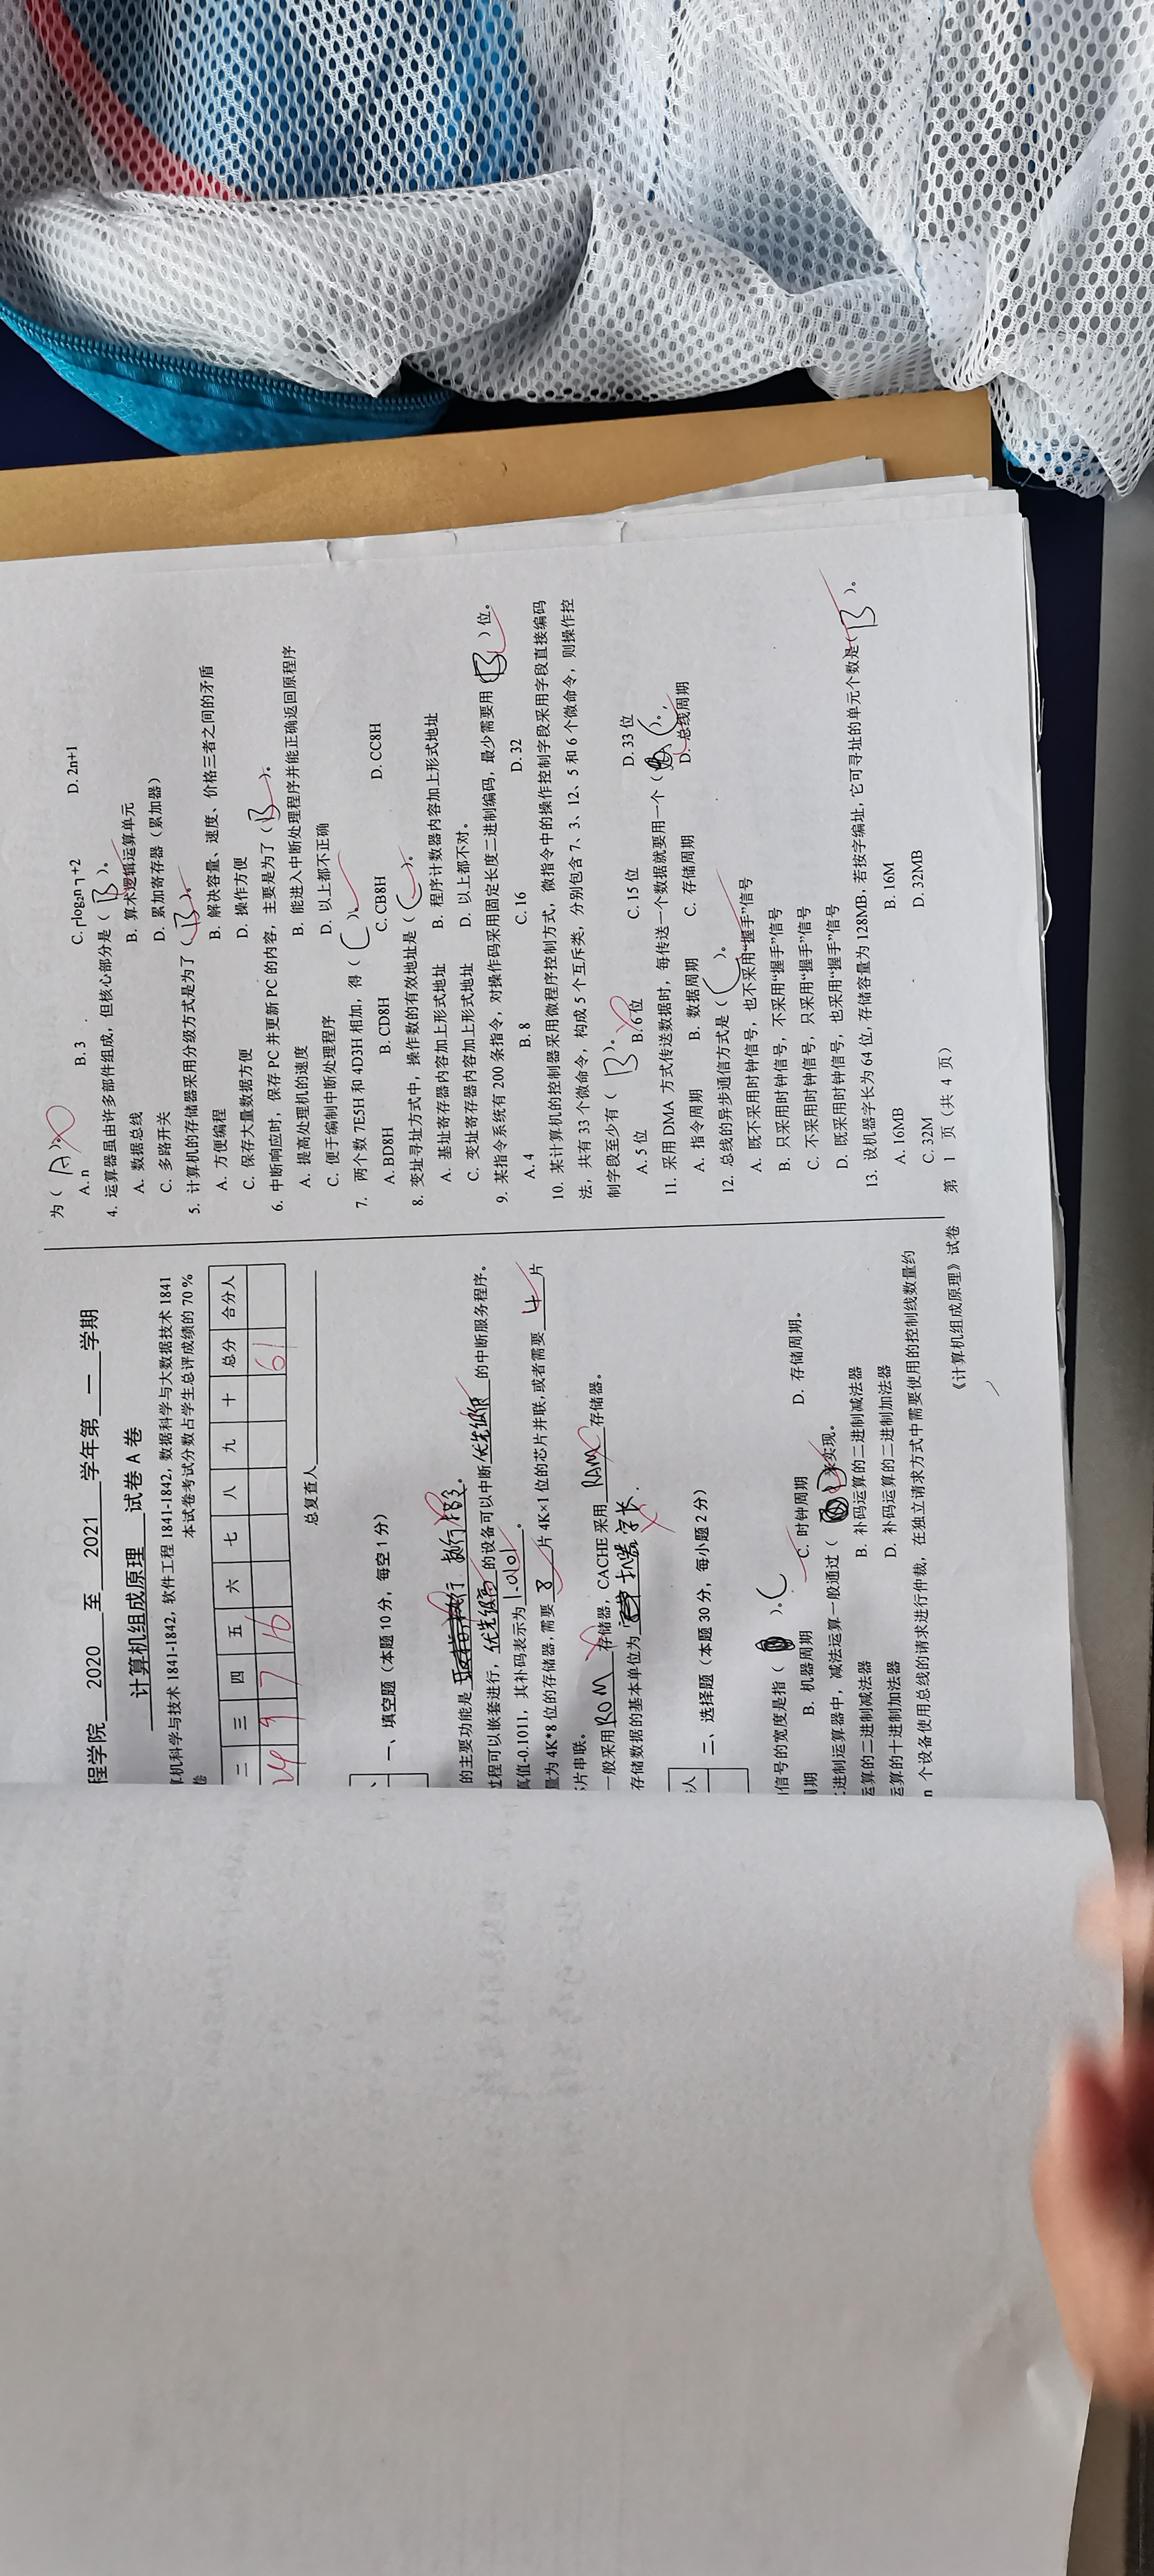 程学院 2020 至 2021 学年第 一 学期
计算机组成原理 试卷 A 卷
算机科学与技术 1841-1842，软件工程 1841-1842，数据科学与大数据技术 1841
卷 本试卷考试分数占学生总评成绩的 70 %
二 三 四 五 六 七 八 九 十 总分 合分人
24 9 7 16 61
总复查人
一、填空题（本题 10 分，每空 1 分）
的主要功能是 执行指令。
过程可以嵌套进行，优先级高的设备可以中断优先级低的中断服务程序。
真值-0.1011，其补码表示为1.0101。
量为 4K*8 位的存储器，需要 8 片 4K×1 位的芯片并联，或者需要 4 片
芯片串联。
一般采用ROM存储器，CACHE 采用 RAM 存储器。
存储数据的基本单位为 机器字长.
人
二、选择题（本题 30 分，每小题 2 分）
信号的宽度是指（ ）。C
周期 B. 机器周期 C. 时钟周期 D. 存储周期。
二进制运算器中，减法运算一般通过（ D）来实现。
运算的二进制减法器 B. 补码运算的二进制减法器
运算的十进制加法器 D. 补码运算的二进制加法器
n 个设备使用总线的请求进行仲裁，在独立请求方式中需要使用的控制线数量约
为（ A ）。
A. n B. 3 C. ┌log₂n ┐+2 D. 2n+1
4. 运算器虽由许多部件组成，但核心部分是（ B ）。
A. 数据总线 B. 算术逻辑运算单元
C. 多路开关 D. 累加寄存器（累加器）
5. 计算机的存储器采用分级方式是为了（ B ）。
A. 方便编程 B. 解决容量、速度、价格三者之间的矛盾
C. 保存大量数据方便 D. 操作方便
6. 中断响应时，保存 PC 并更新 PC 的内容，主要是为了（ B ）。
A. 提高处理机的速度 B. 能进入中断处理程序并能正确返回原程序
C. 便于编制中断处理程序 D. 以上都不正确
7. 两个数 7E5H 和 4D3H 相加，得（ C ）。
A. BD8H B. CD8H C. CB8H D. CC8H
8. 变址寻址方式中，操作数的有效地址是（ C ）。
A. 基址寄存器内容加上形式地址 B. 程序计数器内容加上形式地址
C. 变址寄存器内容加上形式地址 D. 以上都不对。
9. 某指令系统有 200 条指令，对操作码采用固定长度二进制编码，最少需要用（ B ）位。
A. 4 B. 8 C. 16 D. 32
10. 某计算机的控制器采用微程序控制方式，微指令中的操作控制字段采用字段直接编码
法，共有 33 个微命令，构成 5 个互斥类，分别包含 7、3、12、5 和 6 个微命令，则操作控
制字段至少有（ B ）。
A. 5 位 B. 6 位 C. 15 位 D. 33 位
11. 采用 DMA 方式传送数据时，每传送一个数据就要用一个（ C ）。
A. 指令周期 B. 数据周期 C. 存储周期 D. 总线周期
12. 总线的异步通信方式是（ C ）。
A. 既不采用时钟信号，也不采用“握手”信号
B. 只采用时钟信号，不采用“握手”信号
C. 不采用时钟信号，只采用“握手”信号
D. 既采用时钟信号，也采用“握手”信号
13. 设机器字长为 64 位，存储容量为 128MB，若按字编址，它可寻址的单元个数是（ B ）。
A. 16MB B. 16M
C. 32M D. 32MB
《计算机组成原理》试卷 第 1 页（共 4 页）